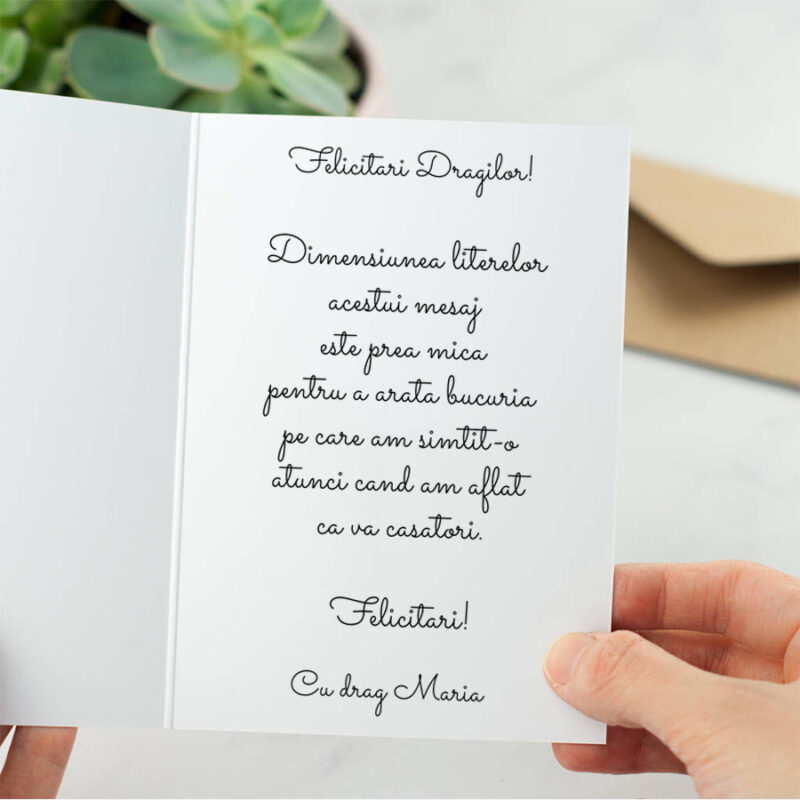 Felicitari Dragilor!
Dimensiunea literelor
acestui mesaj
este prea mica
pentru a arata bucuria
pe care am simtit-o
atunci cand am aflat
ca va casatori.
Felicitari!
Cu drag Maria